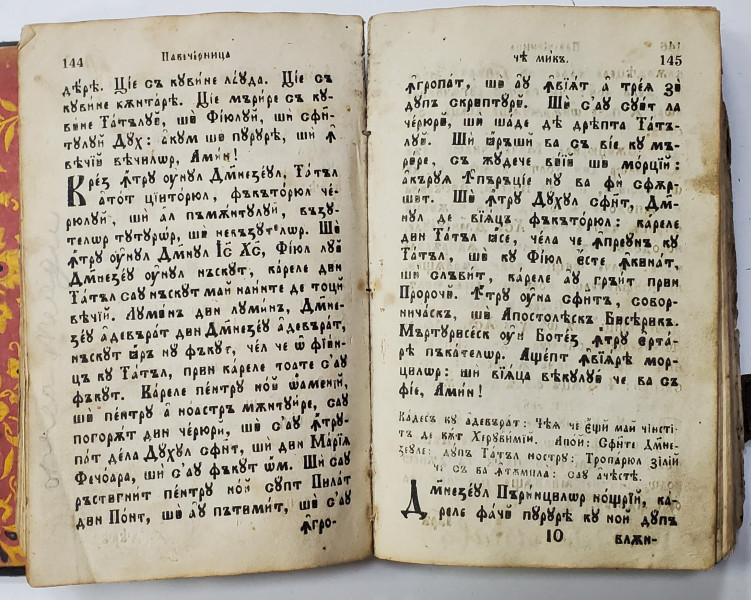 144
Павечѐрница
дѣрѣ. Ціе съ кувине лауда. Ціе съ
кувине кѫнтарѣ. Ціе мърире съ ку-
вине Татълуй, шѝ Фіюлуй, ши сфѝ-
тулуй Дух: акум шѝ пурурѣ, ши ꙟ
вѣчїй вѣчилѡр, Амин!
Крез ꙟтру оунул Дмнезеул, Татъл
атот ціиторюл, фъкъторюл че-
рюлуй, ши ал пъмѫнтулуй, възу-
телѡр тутурѡр, шѝ невъзутелѡр. Шѝ
ꙟтру оунул Дмнул Іс Хс, Фіюл луй
Дмнезеу оунул нъскут, кареле дин
Татъл сау нъскут май наинте де тоцй
вѣчїй. Лумѝнъ дин луминъ, Дмне-
зеу адевърат дин Дмнезеу адевърат,
нъскут ꙗръ ну фъкут, чел че ѡ фіин-
цъ ку Татъл, прин кареле тоате с'ау
фъкут. Кареле пентру ной ѡаменїй,
шѝ пентру а ноастръ мѫнтуире, сау
погорѫт дин черюрй, шѝ с'ау ꙟтру-
пат дела Духул сфѝт, шѝ дин Марїа
Фечоара, ши с'ау фъкут ѡм. Ши сау
ръстигнит пентру ной супт Пилат
дин Понт, шѝ ау пътимит, шѝ с'ау
ꙟгро-
чѣ микъ.
145
ꙟгропат, шѝ ау ꙟвїат а треѧ зѝ
дупъ скриптурѝ. Шѝ с'ау суит ла
черюрѝ, шѝ шаде дѣ дрѣпта Татъ-
луй. Ши ꙗръши ва съ віе ку мъ-
рѝре, съ жудече вїий шѝ морцїй:
акъруꙗ ꙟпъръціе ну ва фи сфѫр-
шит. Шѝ ꙟтру Духул сфѝт, Дм-
нул де віꙗцъ фъкъторюл: кареле
дин Татъл ꙗсе, чела че ꙟпреунъ ку
Татъл, шѝ ку Фіюл есте ꙟкинат,
ши слъвит, кареле ау гръит прин
Пророчй. Ꙟтру оуна сфѝтъ, собор-
ничаскъ, шѝ Апостолѣскъ Бисѣрикъ.
Мъртурисеск оун Ботез ꙟтру ерта-
рѣ пъкателѡр. Ащепт ꙟвїарѣ мор-
цилѡр: ши віꙗца вѣкулуй че ва съ
фіе, Амин!
Кадесъ ку адевърат: Чѣꙗ че ещй май чинсти-
тъ де кѫт Херувимїй. Апой: Сфѝте Дмне-
зеуле: дупъ Татъл ностру: Тропарюл зілій
че съ ва ꙟтѫмпла: сау ачѣстѣ.
Дмнезеул Пъринцилѡр нощрїй, ка-
реле фачй пурурѣ ку ной дупъ
10
блѫн-